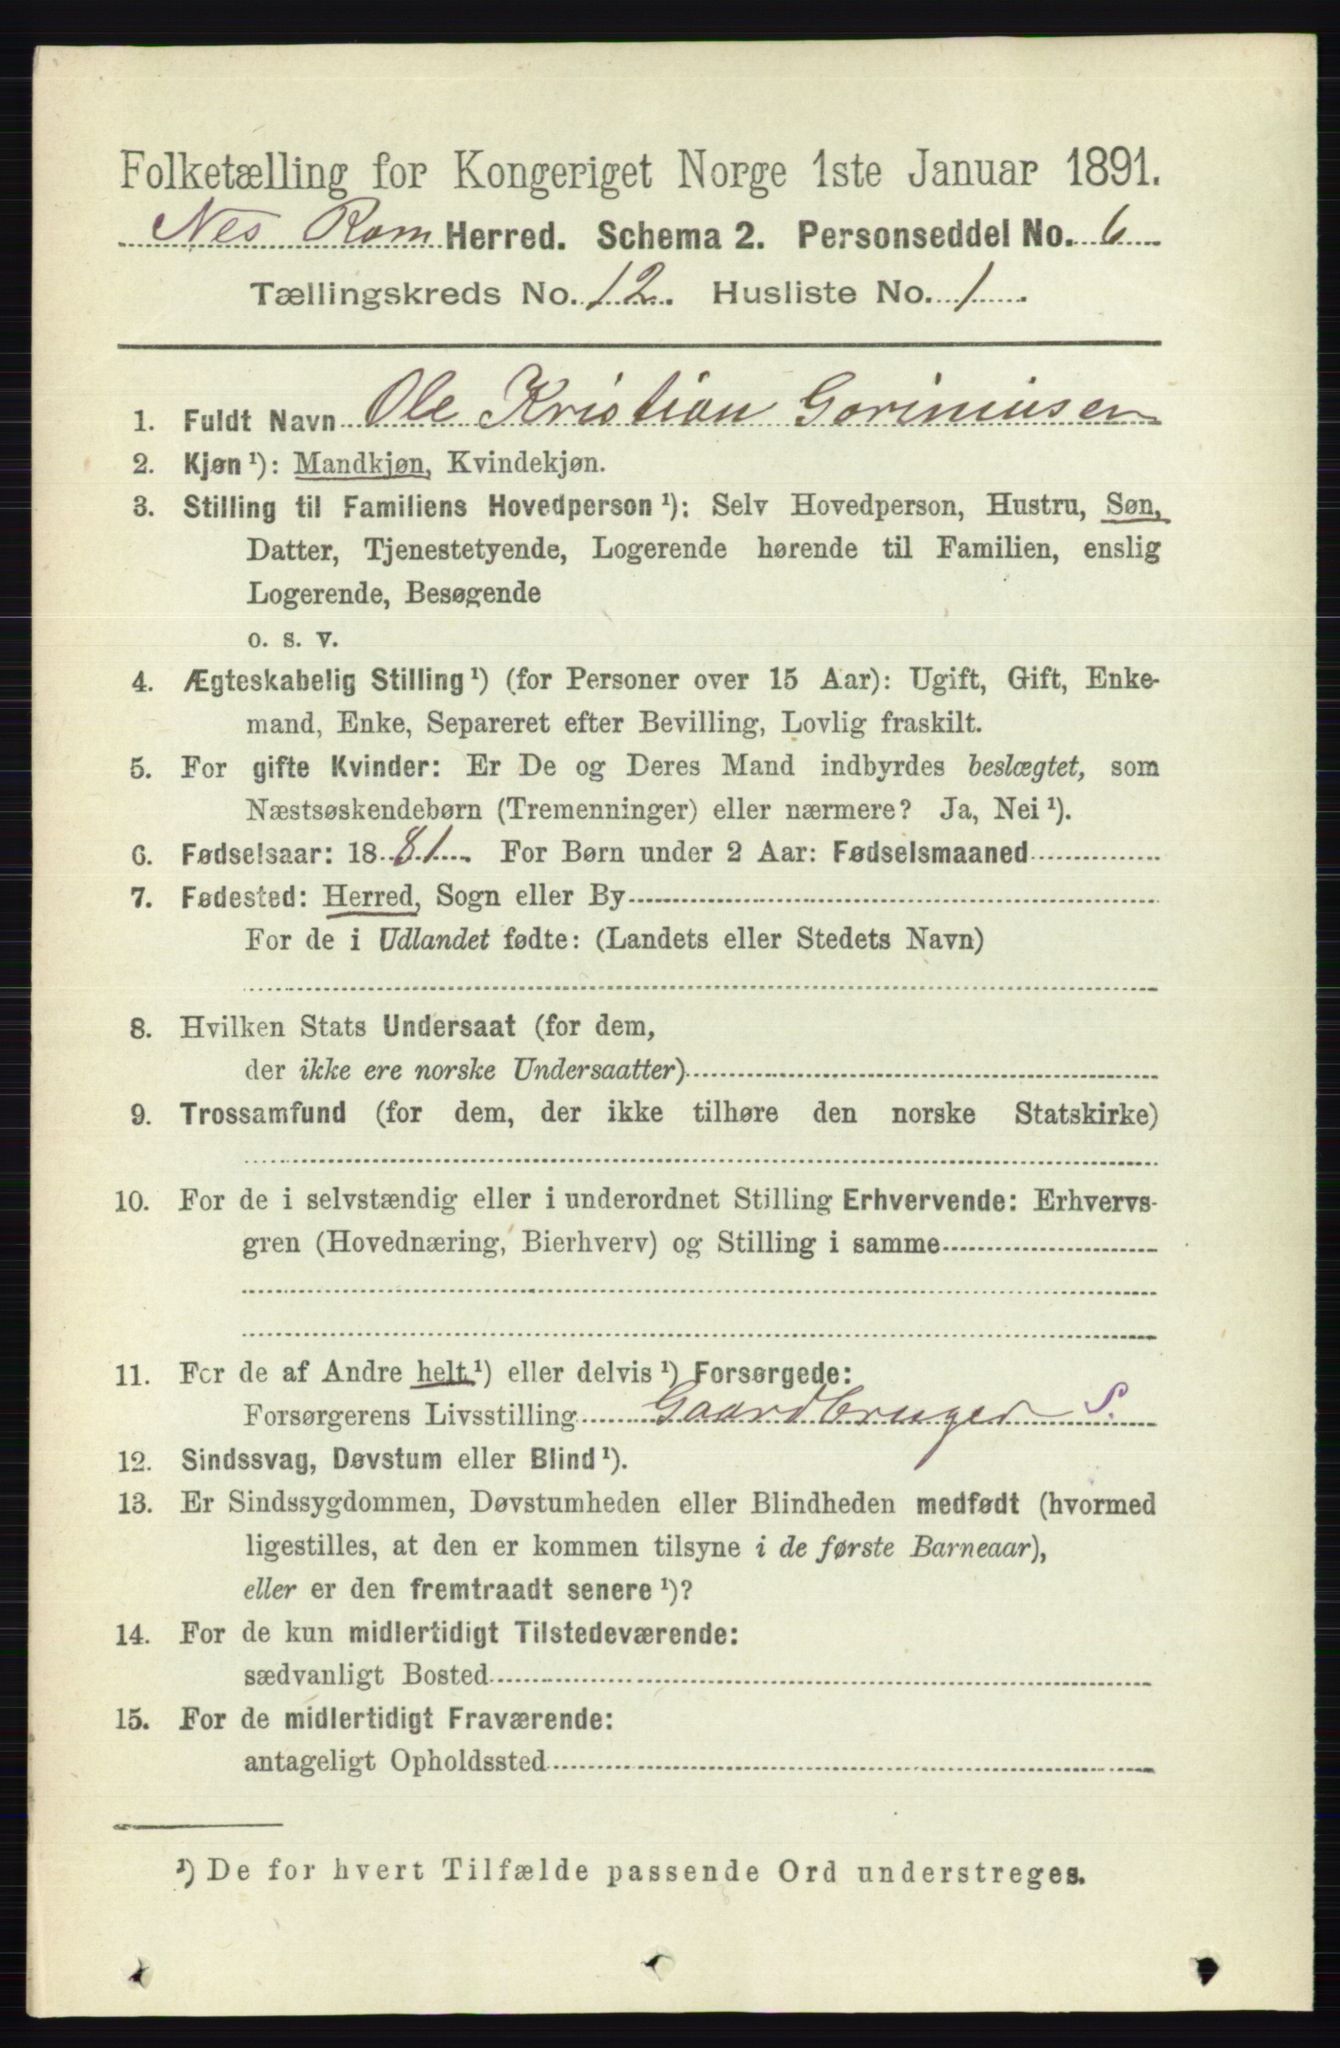 Folketælling for Kongeriget Norge 1ste Januar 1891.
Nes Rom Herred. Schema 2. Personseddel No. 6
Tællingskreds No. 12. Husliste No. 1
1. Fuldt Navn Ole Kristian Goriniusen
2. Kjøn ¹): Mandkjøn, Kvindekjøn.
3. Stilling til Familiens Hovedperson ¹): Selv Hovedperson, Hustru, Søn,
Datter, Tjenestetyende, Logerende hørende til Familien, enslig
Logerende, Besøgende
o. s. v.
4. Ægteskabelig Stilling ¹) (for Personer over 15 Aar): Ugift, Gift, Enke-
mand, Enke, Separeret efter Bevilling, Lovlig fraskilt.
5. For gifte Kvinder: Er De og Deres Mand indbyrdes beslægtet, som
Næstsøskendebørn (Tremenninger) eller nærmere? Ja, Nei ¹).
6. Fødselsaar: 1881. For Børn under 2 Aar: Fødselsmaaned
7. Fødested: Herred, Sogn eller By
For de i Udlandet fødte: (Landets eller Stedets Navn)
8. Hvilken Stats Undersaat (for dem,
der ikke ere norske Undersaatter)
9. Trossamfund (for dem, der ikke tilhøre den norske Statskirke)
10. For de i selvstændig eller i underordnet Stilling Erhvervende: Erhvervs-
gren (Hovednæring, Bierhverv) og Stilling i samme
11. For de af Andre helt ¹) eller delvis ¹) Forsørgede:
Forsørgerens Livsstilling Gaardbruger S.
12. Sindssvag, Døvstum eller Blind ¹).
13. Er Sindssygdommen, Døvstumheden eller Blindheden medfødt (hvormed
ligestilles, at den er kommen tilsyne i de første Barneaar),
eller er den fremtraadt senere ¹)?
14. For de kun midlertidigt Tilstedeværende:
sædvanligt Bosted
15. For de midlertidigt Fraværende:
antageligt Opholdssted
¹) De for hvert Tilfælde passende Ord understreges.